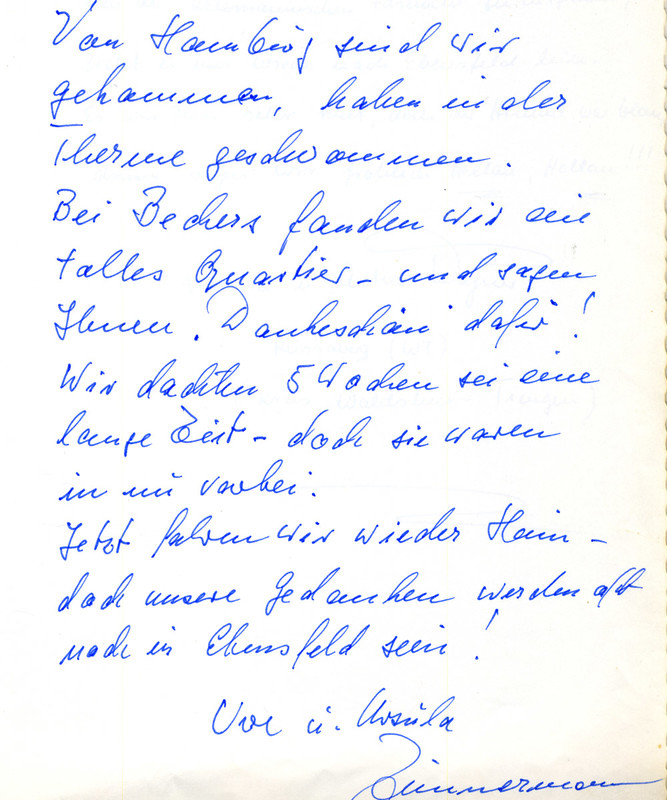 Von Hamburg sind wir
gekommen, haben in der
Therme geschwommen.
Bei Bechers fanden wir ein
tolles Quartier - und sagen
Ihnen "Dankeschön" dafür!
Wir dachten 5 Wochen sei eine
lange Zeit - doch sie waren
in nu vorbei.
Jetzt fahren wir wieder Heim -
doch unsere Gedanken werden oft
noch in Ebensfeld sein!
Uwe u. Ursula
Zimmermann